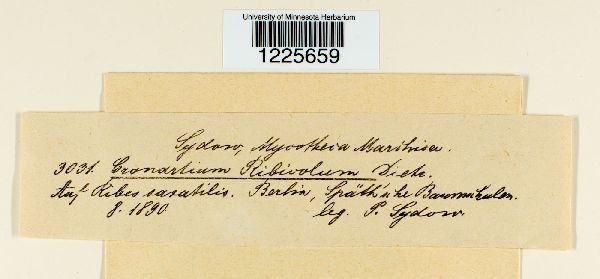 University of Minnesota Herbarium
1225659
Sydow, Mycotheca Marchica.
3031. Cronartium Ribicolum Dietr.
Auf Ribes saxatilis. Berlin, Späth'sche Baumschulen.
8. 1890. leg. P. Sydow.